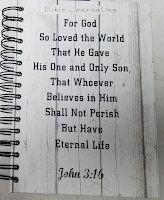 Bible Journaling
For God
So Loved the World
That He Gave
His One and Only Son,
That Whoever
Believes in Him
Shall Not Perish
But Have
Eternal Life
John 3:16